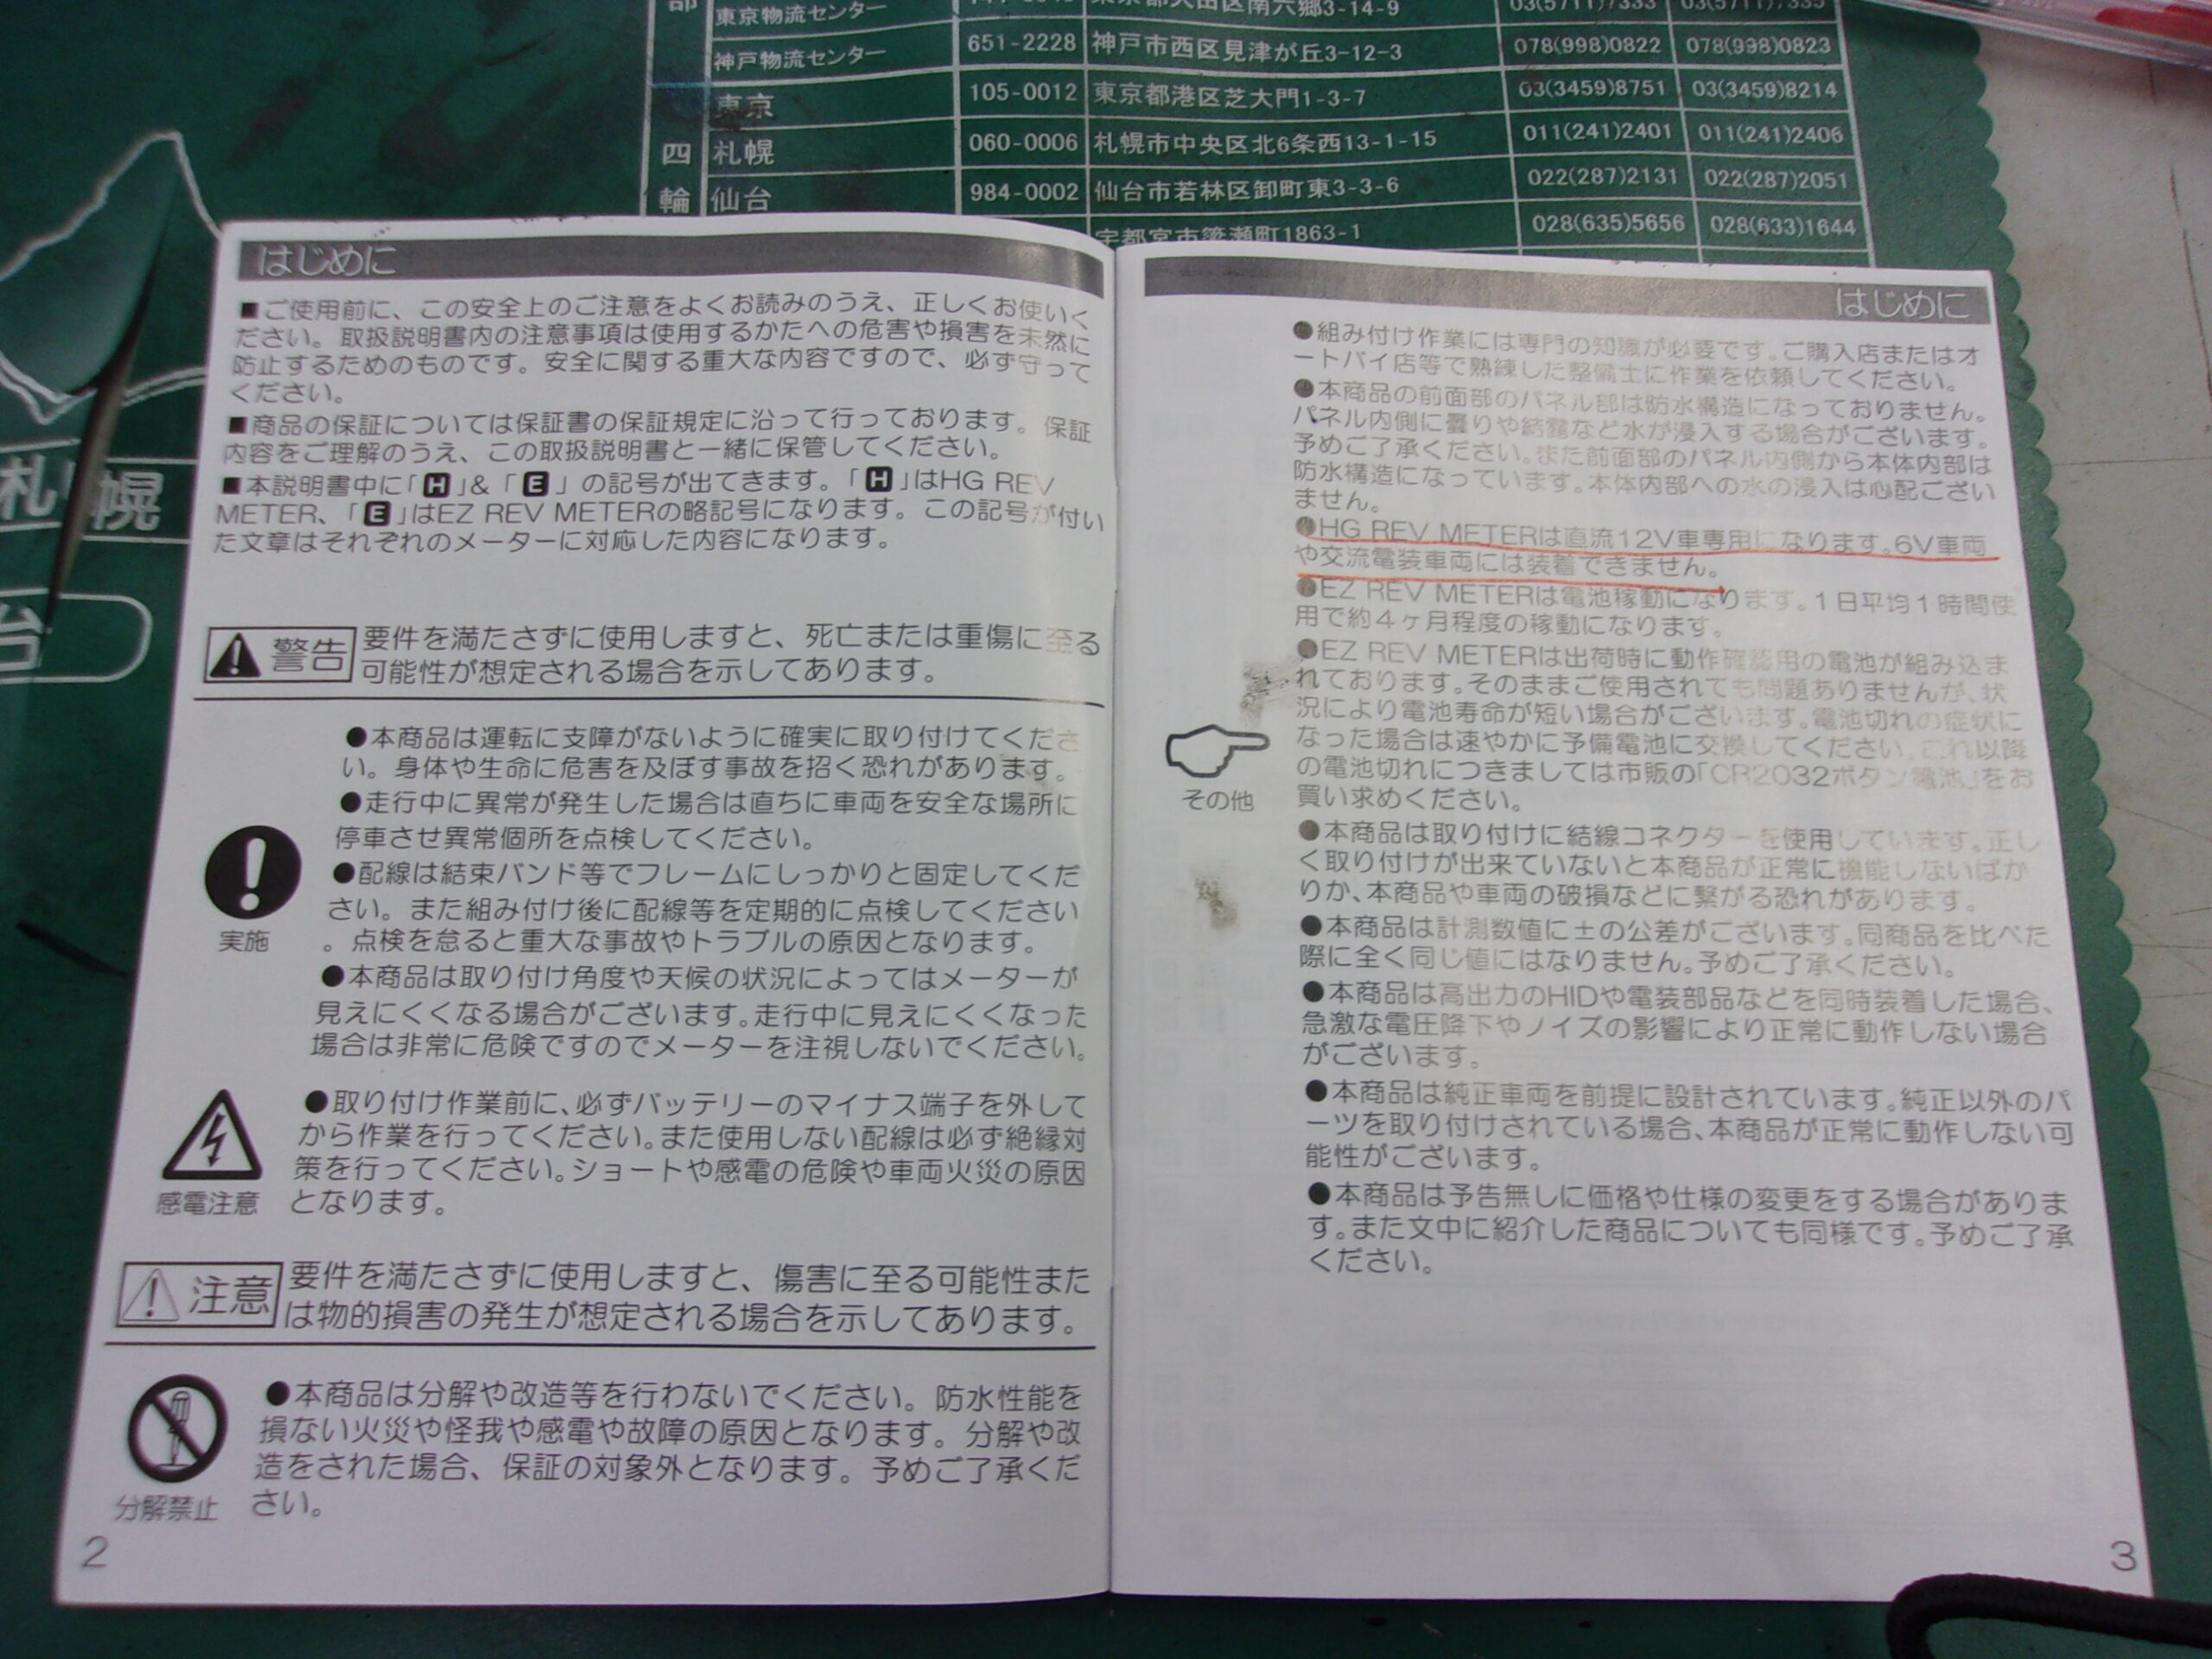 東京物流センター
神戸物流センター 651-2228 神戸市西区見津が丘3-12-3 078(998)0822 078(998)0823
東京 105-0012 東京都港区芝大門1-3-7 03(3459)8751 03(3459)8214
四 札幌 060-0006 札幌市中央区北6条西13-1-15 011(241)2401 011(241)2406
輪 仙台 984-0002 仙台市若林区卸町東3-3-6 022(287)2131 022(287)2051
宇都宮市簗瀬町1863-1 028(635)5656 028(633)1644
札幌
台
はじめに
■ご使用前に、この安全上のご注意をよくお読みのうえ、正しくお使いく
ださい。取扱説明書内の注意事項は使用するかたへの危害や損害を未然に
防止するためのものです。安全に関する重大な内容ですので、必ず守って
ください。
■商品の保証については保証書の保証規定に沿って行っております。保証
内容をご理解のうえ、この取扱説明書と一緒に保管してください。
■本説明書中に「H」&「E」の記号が出てきます。「H」はHG REV
METER、「E」はEZ REV METERの略記号になります。この記号が付い
た文章はそれぞれのメーターに対応した内容になります。
警告 要件を満たさずに使用しますと、死亡または重傷に至る
可能性が想定される場合を示してあります。
●本商品は運転に支障がないように確実に取り付けてくださ
い。身体や生命に危害を及ぼす事故を招く恐れがあります。
●走行中に異常が発生した場合は直ちに車両を安全な場所に
停車させ異常個所を点検してください。
●配線は結束バンド等でフレームにしっかりと固定してくだ
さい。また組み付け後に配線等を定期的に点検してください
。点検を怠ると重大な事故やトラブルの原因となります。
実施
●本商品は取り付け角度や天候の状況によってはメーターが
見えにくくなる場合がございます。走行中に見えにくくなった
場合は非常に危険ですのでメーターを注視しないでください。
●取り付け作業前に、必ずバッテリーのマイナス端子を外して
から作業を行ってください。また使用しない配線は必ず絶縁対
策を行ってください。ショートや感電の危険や車両火災の原因
となります。
感電注意
注意 要件を満たさずに使用しますと、傷害に至る可能性また
は物的損害の発生が想定される場合を示してあります。
●本商品は分解や改造等を行わないでください。防水性能を
損ない火災や怪我や感電や故障の原因となります。分解や改
造をされた場合、保証の対象外となります。予めご了承くだ
さい。
分解禁止
2
はじめに
●組み付け作業には専門の知識が必要です。ご購入店またはオ
ートバイ店等で熟練した整備士に作業を依頼してください。
●本商品の前面部のパネル部は防水構造になっておりません。
パネル内側に曇りや結露など水が浸入する場合がございます。
予めご了承ください。また前面部のパネル内側から本体内部は
防水構造になっています。本体内部への水の浸入は心配ござい
ません。
●HG REV METERは直流12V車専用になります。6V車両
や交流電装車両には装着できません。
●EZ REV METERは電池稼動になります。1日平均1時間使
用で約4ヶ月程度の稼動になります。
●EZ REV METERは出荷時に動作確認用の電池が組み込ま
れております。そのままご使用されても問題ありませんが、状
況により電池寿命が短い場合がございます。電池切れの症状に
なった場合は速やかに予備電池に交換してください。これ以降
の電池切れにつきましては市販の「CR2032ボタン電池」をお
買い求めください。
その他
●本商品は取り付けに結線コネクターを使用しています。正し
く取り付けが出来ていないと本商品が正常に機能しないばか
りか、本商品や車両の破損などに繋がる恐れがあります。
●本商品は計測数値に±の公差がございます。同商品を比べた
際に全く同じ値にはなりません。予めご了承ください。
●本商品は高出力のHIDや電装部品などを同時装着した場合、
急激な電圧降下やノイズの影響により正常に動作しない場合
がございます。
●本商品は純正車両を前提に設計されています。純正以外のパ
ーツを取り付けされている場合、本商品が正常に動作しない可
能性がございます。
●本商品は予告無しに価格や仕様の変更をする場合がありま
す。また文中に紹介した商品についても同様です。予めご了承
ください。
3